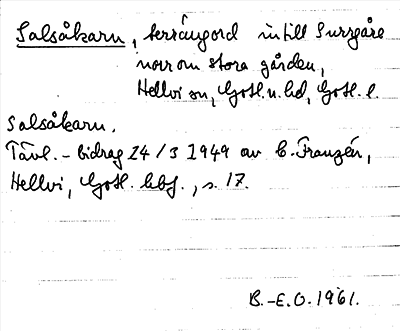 Salsåkarn, terrängord intill Surzgåre
norr om stora gården,
Hellvi sn, Gotl. n. hd, Gotl. l.
Salsåkarn.
Tävl.-bidrag 24/3 1949 av C. Franzén,
Hellvi, Gotl. hbf., s. 17.
B.-E.O. 1961.